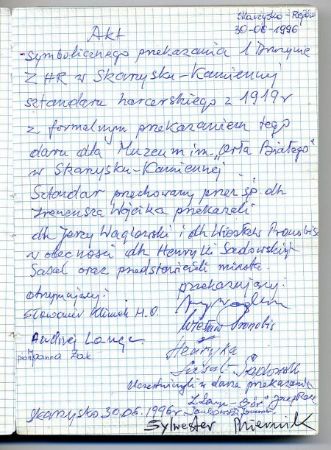 Skarżysko-Rejów
30-06-1996
Akt
symbolicznego przekazania 1 Drużynie
ZHR w Skarżysku-Kamiennej
sztandaru harcerskiego z 1919r
z formalnym przekazaniem tego
daru dla Muzeum im. „Orła Białego”
w Skarżysku-Kamiennej.
Sztandar przechowany przez śp. dh
Ireneusza Wójcika przekazali
dh Jerzy Waglowski i dh Wiesław
w obecności dh Henryki Sadowskiej
oraz przedstawicieli miasta.
otrzymujący: przekazujący:
Sławomir H.O.
Andrzej Lange
Żak
Henryka
Sadowska
Uczestniczyli w darze przekazania
Skarżysko 30.06.1996r
Sylwester Biernik